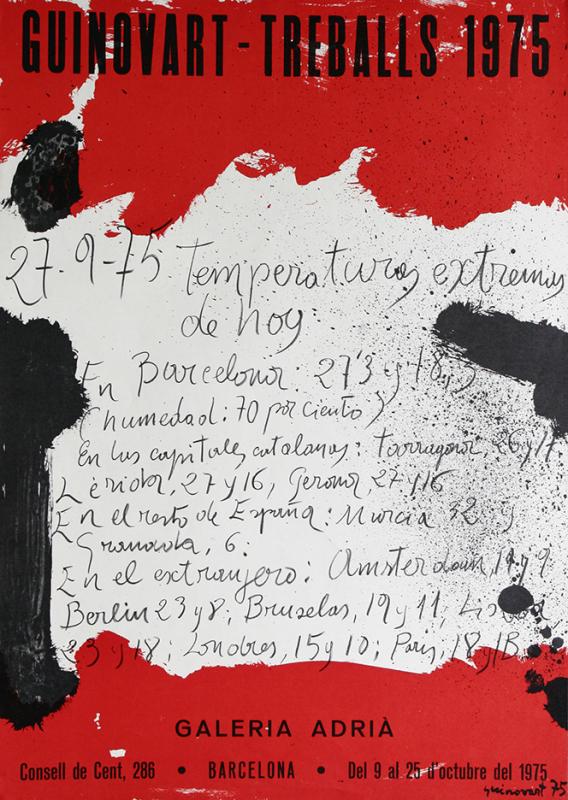 GUINOVART - TREBALLS 1975
27-9-75 Temperaturas extremas
de hoy
En Barcelona: 27'3 y 18,3
(humedad: 70 por ciento)
En las capitales catalanas: Tarragona, 26 y 17.
Lérida, 27 y 16, Gerona, 27 y 16
En el resto de España: Murcia 32 y
Granada, 6.
En el extranjero: Amsterdam, 14 y 9
Berlin 23 y 8; Bruselas, 19 y 11,
23 y 18; Londres, 15 y 10; Paris, 18 y 13
GALERIA ADRIÀ
Consell de Cent, 286 • BARCELONA • Del 9 al 25 d'octubre del 1975
guinovart 75